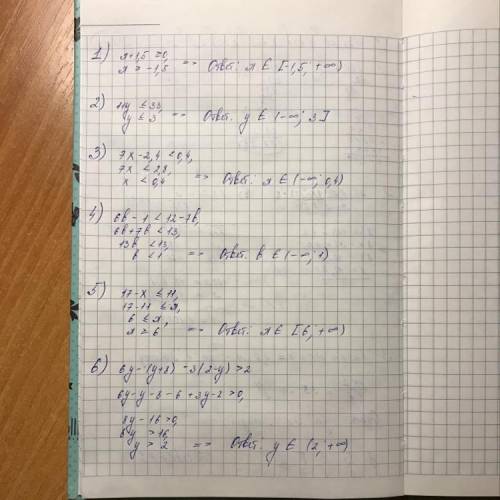 1) x+1,5 ≥0,
x ≥ -1,5 => Ответ: x ∈ [-1,5; +∞)
2) 11y ≤ 33,
y ≤ 3 => Ответ. y ∈ (-∞; 3]
3) 7x-2,4 <0,4,
7x <2,8,
x <0,4 => Ответ: x ∈ (-∞; 0,4)
4) 6b - 1 < 12-7b,
6b+7b <13,
13b <13,
b <1 => Ответ. b ∈ (-∞; 1)
5) 17-x ≤ 11,
17-11 ≤ x,
6 ≤ x,
x ≥ 6 => Ответ. x ∈ [6; +∞)
6) 6y-(y+8) -3(2-y) >2
6y-y-8-6+3y-2 >0,
8y-16 >0,
8y >16,
y > 2 => Ответ. y ∈ (2; +∞)